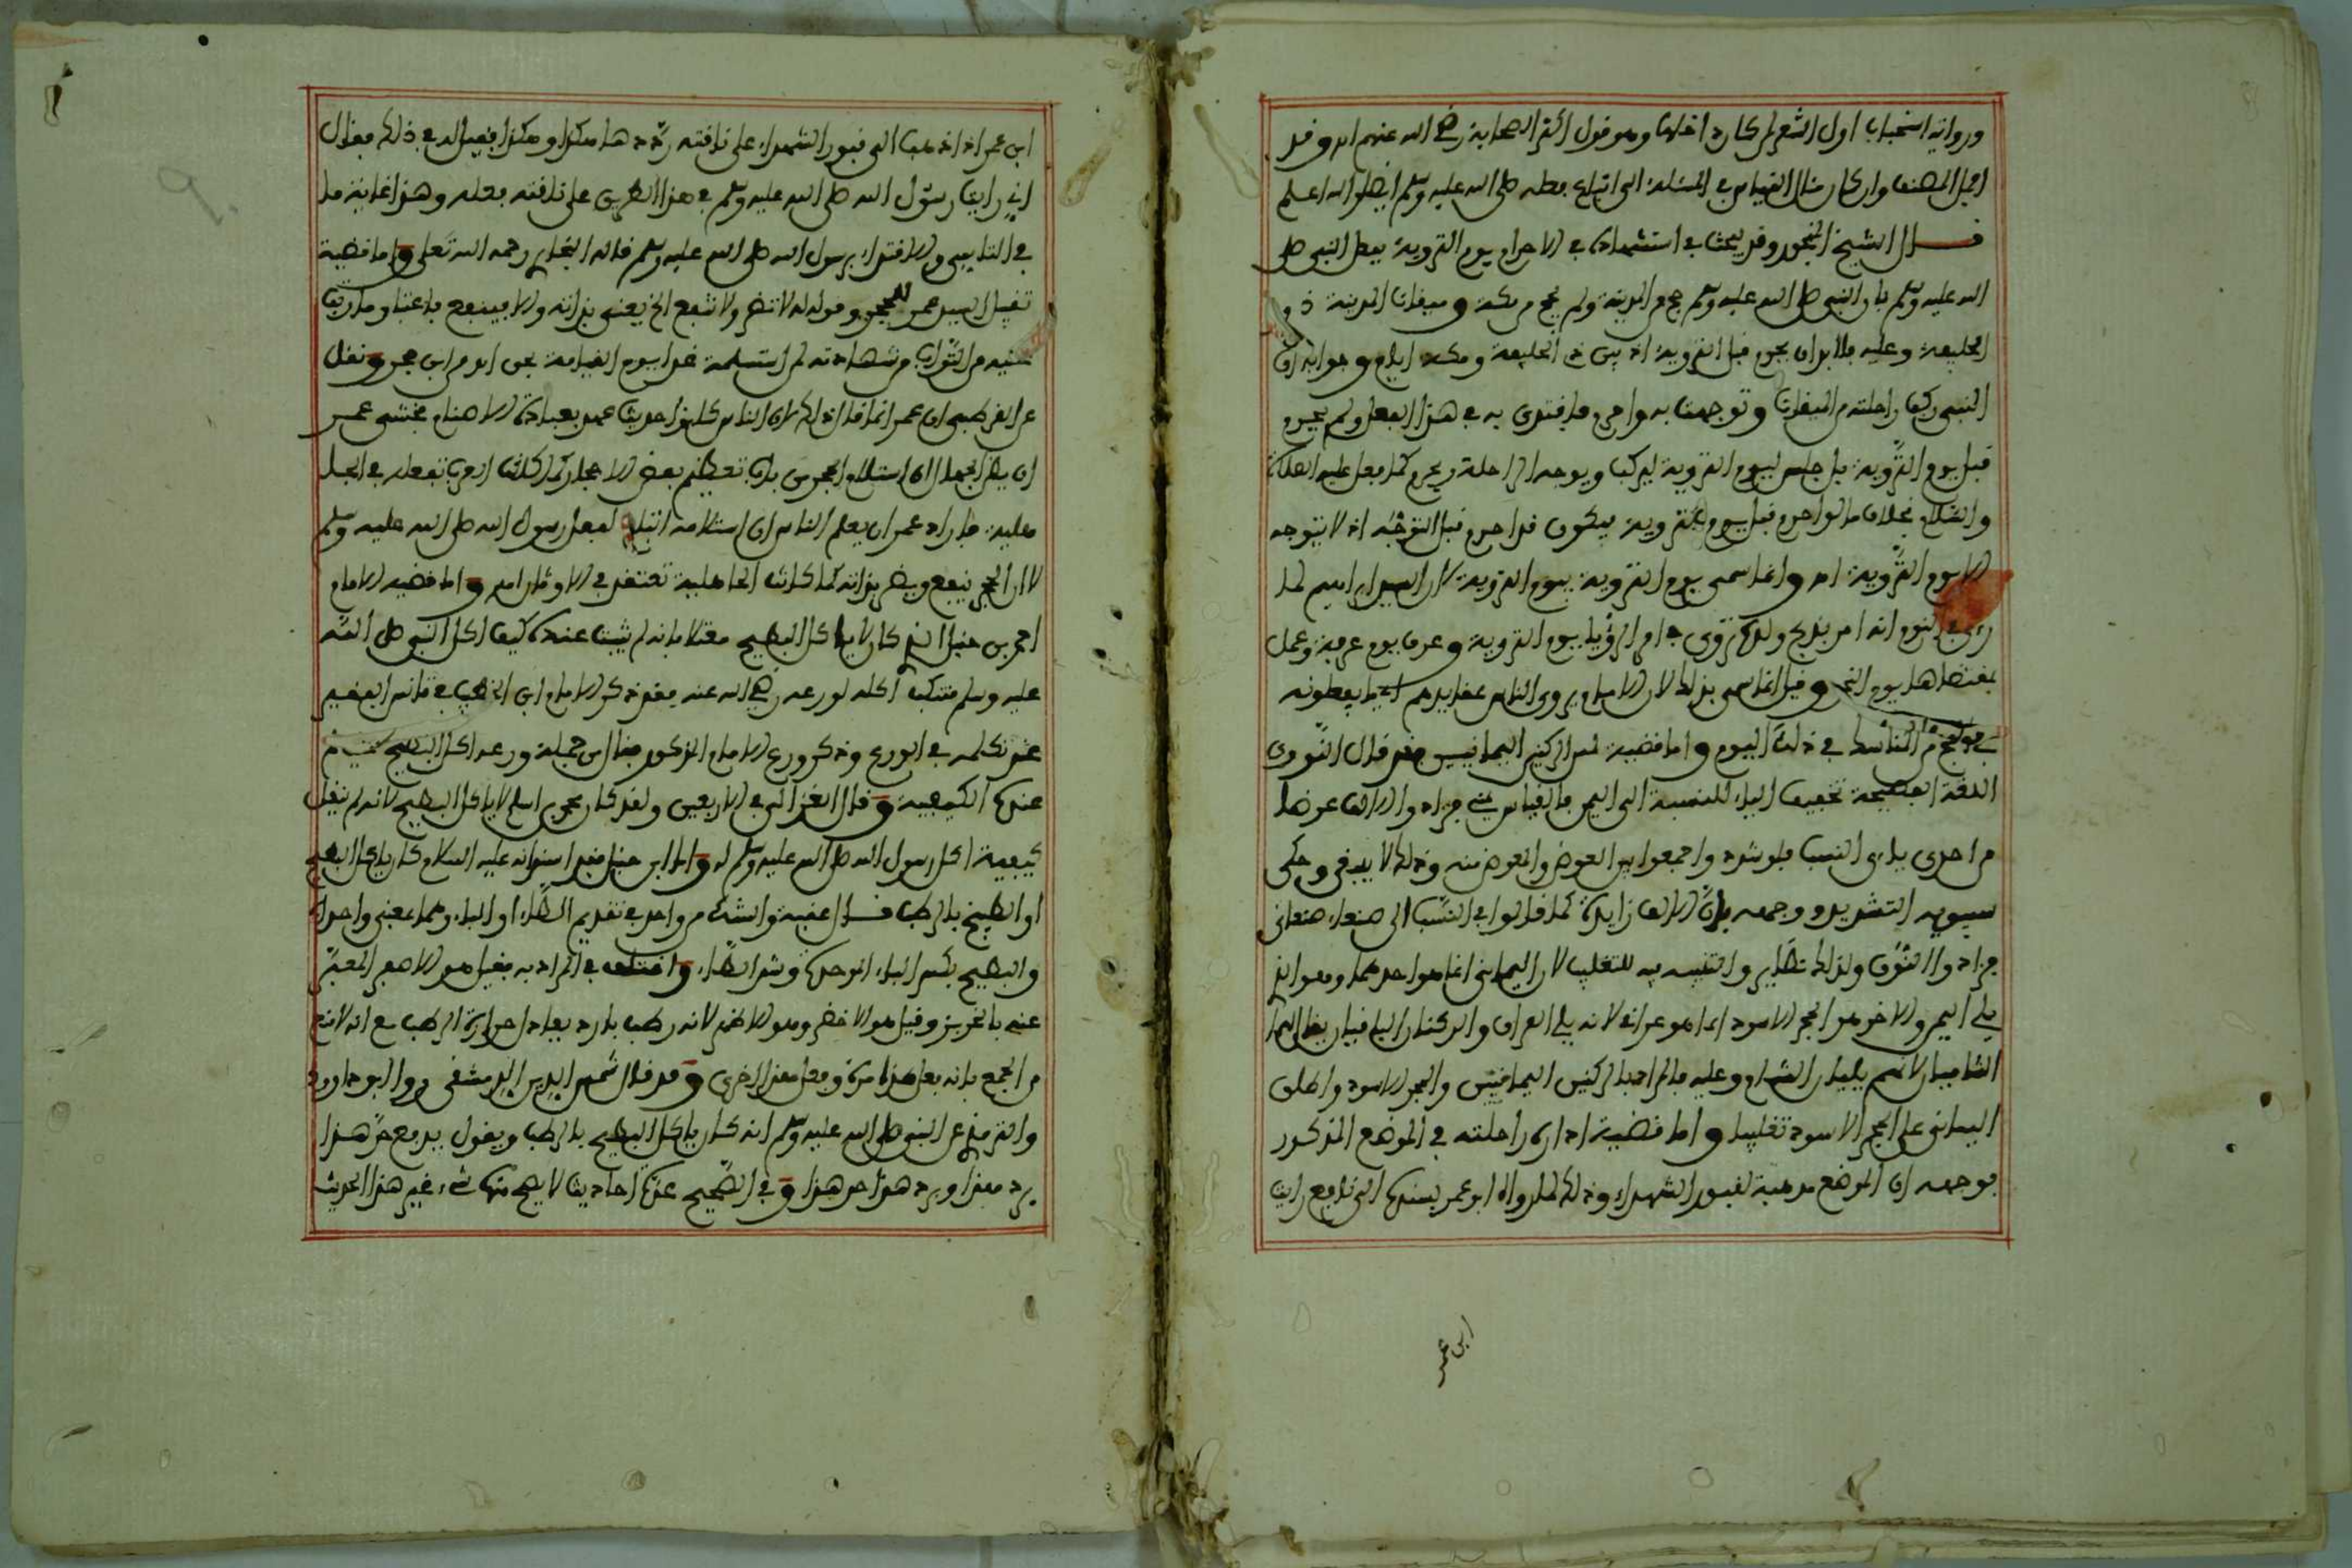 ورواية استحباب اول الشهر لمن كان داخلها وهو قول اكثر الصحابة رضي الله عنهم اه وقد
المصنف وان كان مثال القياس في المسئلة الى اتباع فعله صلى الله عليه وسلم ايضا والله اعلم
قال الشيخ المنجور وقد يبحث في استشهاده في الاحرام يوم التروية بفعل النبي صلى
الله عليه وسلم بان النبي صلى الله عليه وسلم حج من المدينة ولم يحج من مكة وميقات المدينة ذو
الحليفة وعليه فلا بد ان يحرم قبل التروية اذ بين ذي الحليفة ومكة ايام وجوابه ان
النبي ركب راحلته من الميقات وتوجهت به واحرم فاقتدى به في هذا الفعل ولم يحرم
قبل يوم التروية بل جلس ليوم التروية ليركب ويوجه الراحلة ويحرم كما فعل عليه الصلاة
والسلام بخلاف ما لو احرم قبل يوم التروية فيكون قد احرم قبل التوجه اذ لا يتوجه
الا يوم التروية اه وانما سمي يوم التروية بيوم التروية لان السيد ابراهيم لما
رءى في النوم انه امر بذبح ولده تروى في امر الرؤيا يوم التروية وعرف يوم عرفة وعمل
بمقتضاها يوم النحر وقيل انما سمي بذلك لان الامام يروي الناس فيما يفعلونه
من المناسك في ذلك اليوم واما قضية لمس الركنين اليمانيين فقد قال النووي
اللغة الفصيحة تخفيف الياء للنسبة الى اليمن فالقياس يمني فزادوا الالف عوضا
من احدى ياءي النسب فلو شدد واجمعوا بين العوض والمعوض منه وذلك لا يجوز وحكى
سيبويه التشديد ووجهه بان الالف زايدة كما قالوا في النسب الى صنعاء صنعاني
فزادوا النون ولذلك نظاير والتثنية به للتغليب لان اليماني انما هو احدهما وهو الذي
يلي اليمن والاخر هو الحجر الاسود انما هو عراقي لانه يلي العراق والركنان الباقيان يقال لهما
الشاميان لانهما يليان الشام وعليه فالمراد بالركنين اليمانيين والحجر الاسود واطلق
اليماني على الحجر الاسود تغليبا واما قضية ادارة راحلته في الموضع المذكور
فوجهه ان الموضع مرهبة لقبور الشهداء وذلك لما رواه ابو عمر بسنده الى نافع رايت
ابن عمر
ابن عمر اذا ذهب الى قبور الشهداء على ناقته ردها هكذا وهكذا فقيل له في ذلك فقال
اني رايت رسول الله صلى الله عليه وسلم في هذا الطريق على ناقته بفعله وهذا غاية ما
في التاسي والاقتداء برسول الله صلى الله عليه وسلم قاله البخاري رحمه الله تعلى واما قضية
تقبيل السيد عمر للحجر وقوله له لا تضر ولا تنفع الخ يعني بذاته والا فينفع باعتبار ما رتب
عليه من الثواب من شهادته لمن استلمه غدا يوم القيامة بحق اه من ابن حجر ونقل
عن القرطبي ان عمر انما قال ذلك لان الناس كانوا حديث عهد بعبادة الاصنام فخشي عمر
ان يظن الجهال ان استلام الحجر من باب تعظيم بعض الاحجار كما كانت العرب تفعله في الجا
هلية فاراد عمر ان يعلم الناس ان استلامه اتباع لفعل رسول الله صلى الله عليه وسلم
لا ان الحجر ينفع ويضر بذاته كما كانت الجاهلية تعتقد في الاوثان اه واما قضية الامام
احمد بن حنبل الذي كان لا ياكل البطيخ معتلا بانه لم يثبت عنده كيف اكل النبي صلى الله
عليه وسلم فتركه اكله لورعه رضي الله عنه فقد ذكر الامام ابن الخطيب في تانس الفقير
عند تكلمه في الورع وذكر ورع الامام المذكور فقال من جملة ورعه اكل البطيخ
عنده الكيفية وقال الغزالي في الاربعين ولقد كان محمد بن اسلم لا ياكل البطيخ لانه لم ينقل
كيفية اكل رسول الله صلى الله عليه وسلم له واما ابن حنبل فقد انه عليه السلام كان ياكل البطيخ
او الطبيخ بالرطب قال عقبة والشك من واحد في تقديم الطاء او الباء وهما بمعنى واحد اه
والبطيخ بكسر الباء الموحدة وشد الطاء واختلف في المراد به فقيل هو الاصفر المعبر
عنه بالخربز وقيل هو الاخضر وهو الاظهر لانه رطب بارد يعادل حرارة الرطب مع انه لا مانع
من الجمع بانه فعل هذا مرة وفعل هذا اخرى وقد قال شمس الدين الدمشقي روى ابو داوود
والترمذي عن النبي صلى الله عليه وسلم انه كان ياكل البطيخ بالرطب ويقول يدفع حر هذا
برد هذا وبرد هذا حر هذا وفي البطيخ عدة احاديث لا يصح منها شيء غير هذا الحديث